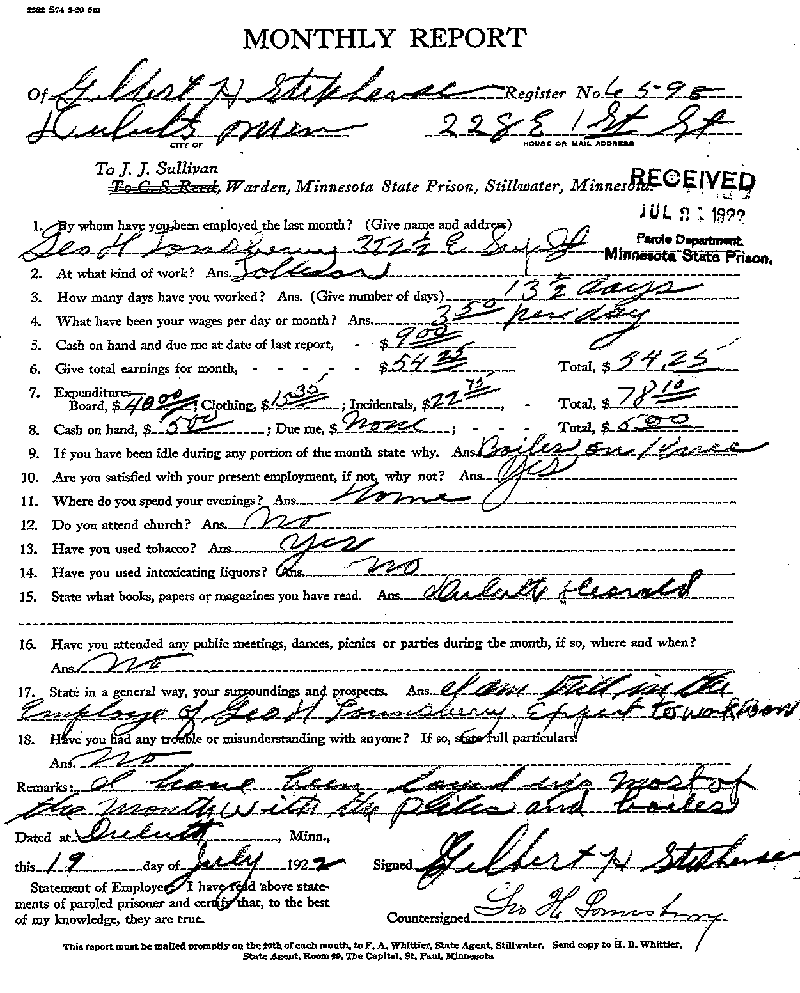 2282 574 3-20 5m
MONTHLY REPORT
Of Gilbert H Stephenson Register No. 6598
Duluth Minn 228 E 1 St St
CITY OF HOUSE OR MAIL ADDRESS
To J. J. Sullivan
To C. S. Reed, Warden, Minnesota State Prison, Stillwater, Minnesota.
RECEIVED
JUL 21 1922
Parole Department.
Minnesota State Prison.
1. By whom have you been employed the last month? (Give name and address)
Geo H Lounsberry 302½ E St
2. At what kind of work? Ans.
3. How many days have you worked? Ans. (Give number of days) 13½ days
4. What have been your wages per day or month? Ans. 3.50 per day
5. Cash on hand and due me at date of last report, - $ 9.00
6. Give total earnings for month, - - - - - $54.25 Total, $ 54.25
7. Expenditures
Board, $ 40.00; Clothing, $15.35; Incidentals, $22.75, - - Total, $ 78.10
8. Cash on hand, $ 5.00; Due me, $ none; - - Total, $ 5.00
9. If you have been idle during any portion of the month state why. Ans. Boiles on Knee
10. Are you satisfied with your present employment, if not, why not? Ans. Yes
11. Where do you spend your evenings? Ans. Home
12. Do you attend church? Ans. No
13. Have you used tobacco? Ans. Yes
14. Have you used intoxicating liquors? Ans. No
15. State what books, papers or magazines you have read. Ans. Duluth Herald
16. Have you attended any public meetings, dances, picnics or parties during the month, if so, where and when?
Ans. No
17. State in a general way, your surroundings and prospects. Ans. I am still in the
Employe of Geo H Lounsberry Expect to work
18. Have you had any trouble or misunderstanding with anyone? If so, state full particulars!
Ans. No
Remarks: I have been layed up most of
the month with the piles and boiles
Dated at Duluth, Minn.,
this 19 day of July 1922 Signed Gilbert H Stephenson
Statement of Employer. I have read above state-
ments of paroled prisoner and certify that, to the best
of my knowledge, they are true. Countersigned Geo H Lounsberry
This report must be mailed promptly on the 20th of each month, to F. A. Whittier, State Agent, Stillwater. Send copy to H. B. Whittier,
State Agent, Room 49, The Capital, St. Paul, Minnesota